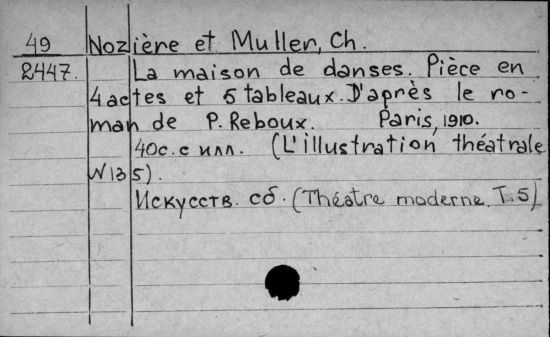 49 Nozière et Muller, Ch.
2447. La maison de danses. Pièce en
4 actes et 5 tableaux. D'après le ro-
man de P. Reboux. Paris, 1910.
40с. с илл. (L'illustration théatrale
N 135).
Искусств. сб. (Théatre moderne. T. 5)